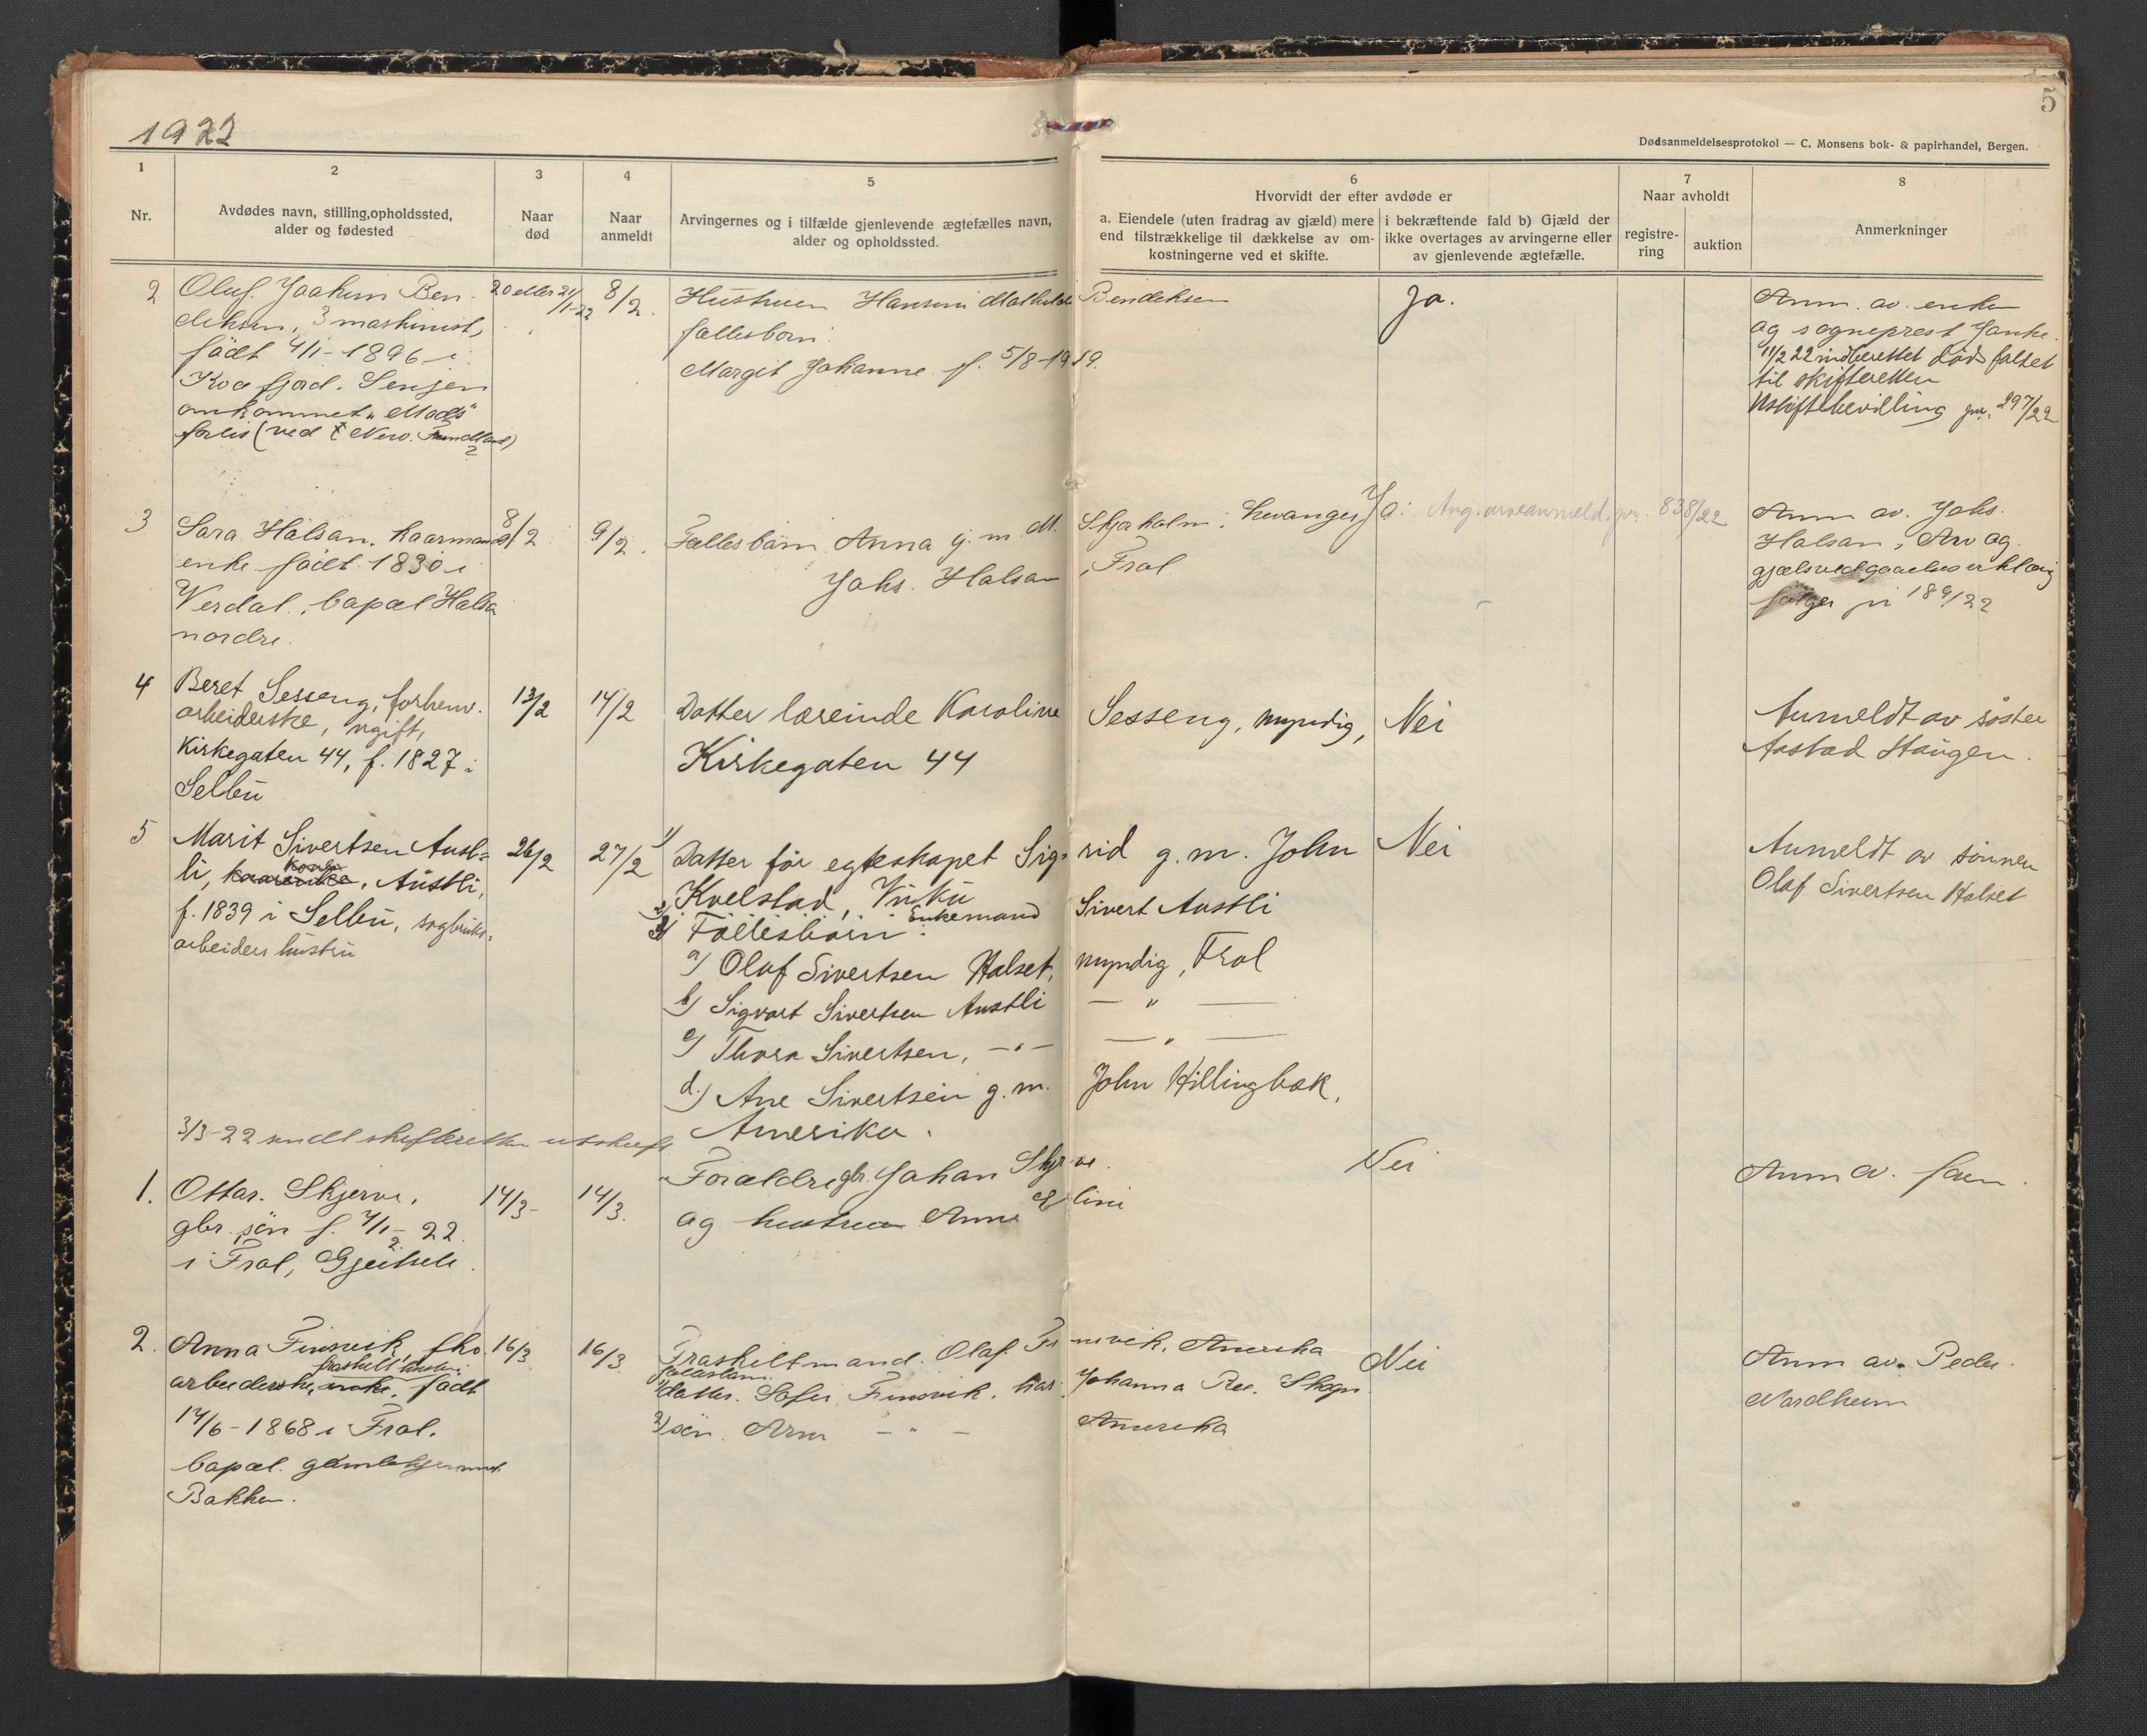 1922
5
Dødsanmeldelsesprotokol — C. Monsens bok- & papirhandel, Bergen.
1
Nr.
2
Avdødes navn, stilling, opholdssted,
alder og fødested
3
Naar
død
4
Naar
anmeldt
5
Arvingernes og i tilfælde gjenlevende ægtefælles navn,
alder og opholdssted.
6
Hvorvidt der efter avdøde er
a. Eiendele (uten fradrag av gjæld) mere
end tilstrækkelige til dækkelse av om-
kostningerne ved et skifte.
i bekræftende fald b) Gjæld der
ikke overtages av arvingerne eller
av gjenlevende ægtefælle.
7
Naar avholdt
registre-
ring
auktion
8
Anmerkninger
2
Oluf Joakim Ben-
diksen, 3 maskinist,
født 4/1-1896 i
fjord. Senjen
omkommet "Mods"
forlis (ved New.
20 eller 21/1-22
8/2.
Hustruen Hansine Mathilde Bendiksen
fællesbarn:
Margit Johanne f. 5/8-1919.
Ja.
Anm. av enken
og sogneprest Janke.
11/2 22 indberettet dødsfaldet
til skifteretten
Uskiftebevilling jnr. 297/22
3
Sara Halsan. kaarmands
enke født 1830 i
Verdal, bopæl Halsa
nordre.
8/2
9/2.
Fællesbarn Anna g. m. M. Skjeholm, Levanger
Johs. Halsan, Frol
Ja:
Ang. arveanmeld. jnr. 838/22
Anm av. Johs.
Halsan, Arv og
gjælsvedgaaelseserklæring
følger jnr 189/22
4
Beret Sesseng, forhenv.
arbeiderske, ugift,
Kirkegaten 44, f. 1827 i
Selbu
13/2
14/2
Datter lærerinde Karoline Sesseng, myndig,
Kirkegaten 44
Nei
Anmeldt av søster
Aastad Haugen.
5
Marit Sivertsen Aust-
li, Austli,
f. 1839 i Selbu, sagbruks-
arbeiders hustru
26/2
27/2
1) Datter før egteskapet Sigrid g. m. John
Kvelstad, Vuku
2) Enkemand Sivert Austli
3) Fællesbarn:
a) Olaf Sivertsen Halset, myndig, Frol
b) Sigvart Sivertsen Austli — " —
c) Thora Sivertsen, — " — — " —
d.) Ane Sivertsen g. m. John Hillingbæk,
Amerika.
Nei
Anmeldt av sønnen
Olaf Sivertsen Halset
3/3-22 sendt skifteretten utskrift
1.
Ottar. Skjerve,
gbr. søn f. 4/1-22
2
i Frol,
14/3-
14/3.
Forældre gbr. Johan Skjerve.
og hustru Anne Elini
Nei
Anm av. faren.
2.
Anna Finsvik, fho.
fraskilt hustru
arbeiderske, enke. født
14/6-1868 i Frol.
bopæl.
Bakken.
16/3
16/3.
Fraskilt mand. Olaf Finsvik, Amerika
fællesbarn.
1) datter. Sofie Finsvik. Johanna Ree. Skogn
2) søn. Arne — " — Amerika
Nei
Anm av. Peder
Nordheim